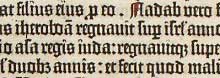 at filius eius ꝓ eo. Nadab vero fi
us iheroboā regnauit suꝑ isrl̄ anno
o asa regis iuda: regnauitqꝫ suꝑ
duobꝫ annis: et fecit quod malū